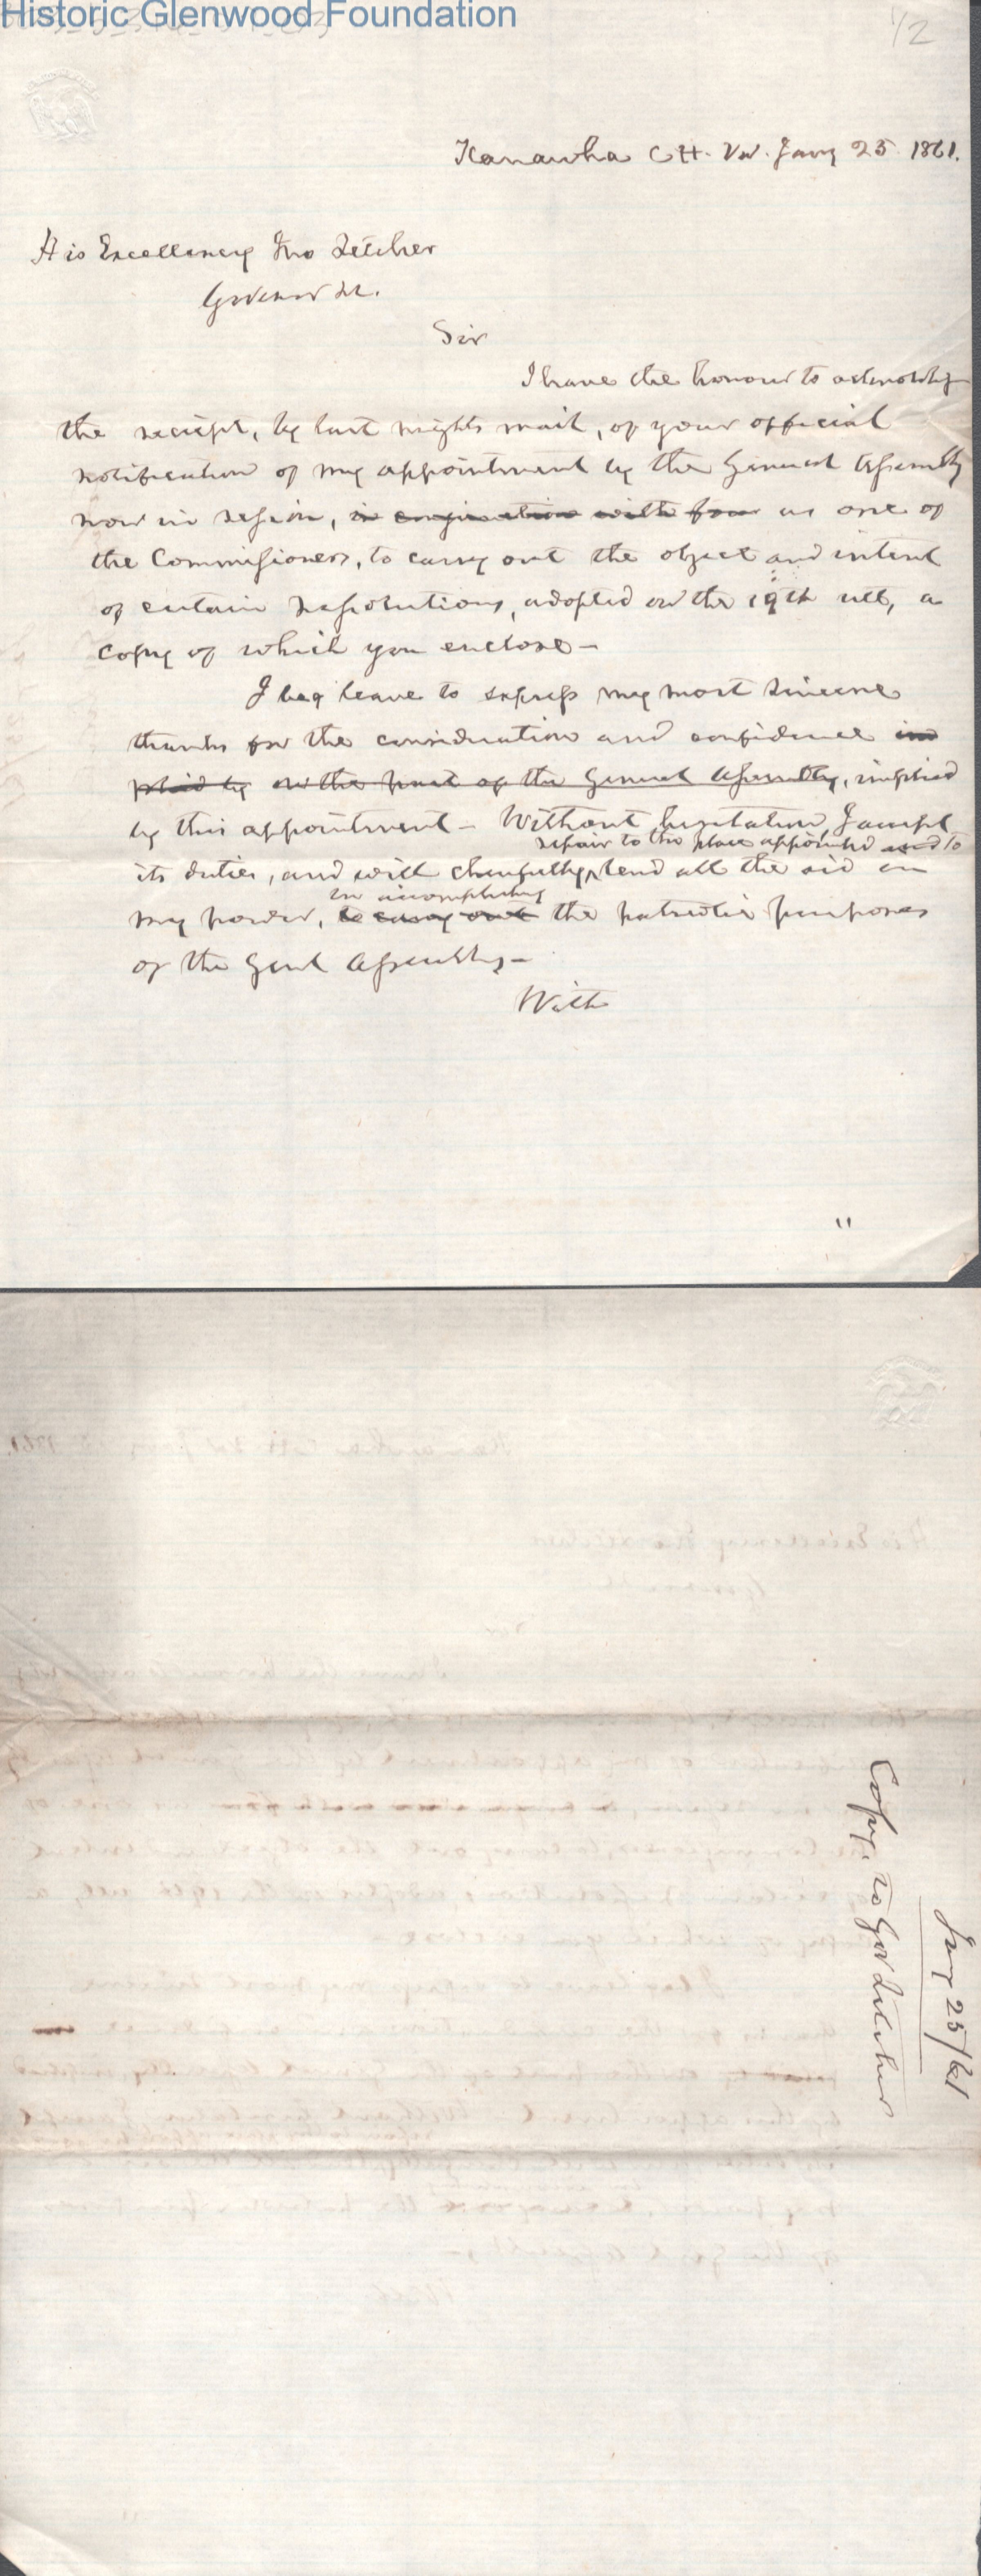 Historic Glenwood Foundation
1/2
Kanawha C.H. Va. Jany 25. 1861.
His Excellency Jno Letcher
Governor &c.
Sir
I have the honour to acknowledge
the reciept, by last nights mail, of your official
notification of my appointment by the General Assembly
now in session, in conjunction with four as one of
the Commissioners, to carry out the object and intent
of certain resolutions, adopted on the 19th ult, a
copy of which you enclose –
I beg leave to express my most sincere
thanks for the consideration and confidence im
plied by on the part of the General Assembly, implied
by this appointment – Without hesitation, I accept
repair to the place appointed and to
its duties, and will cheerfully, lend all the aid in
in accomplishing
my power, to carry out the patriotic purposes
of the Genl Assembly –
With
"
Copy. to Gov Letcher
Jany 25/61